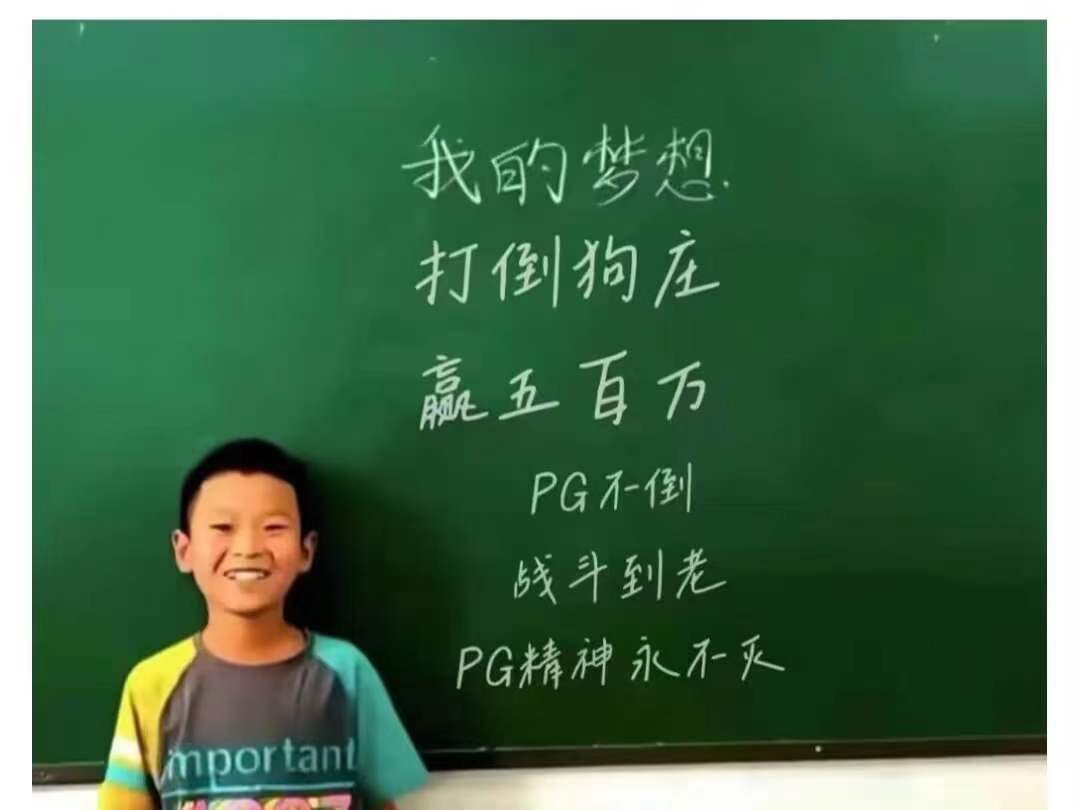 我的梦想
打倒狗庄
赢五百万
PG不倒
战斗到老
PG精神永不灭
mportant